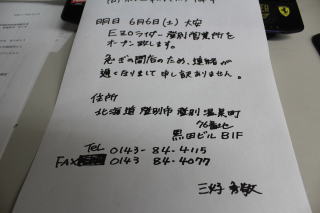 明日 6月6日(土)大安
EZOライダー 登別営業所を
オープン致します。
急ぎの開店のため、連絡が
遅くなりまして申し訳ありません。
住所
北海道登別市登別温泉町
76番地
黒田ビルB1F
TEL 0143-84-4115
FAX 0143 84-4077